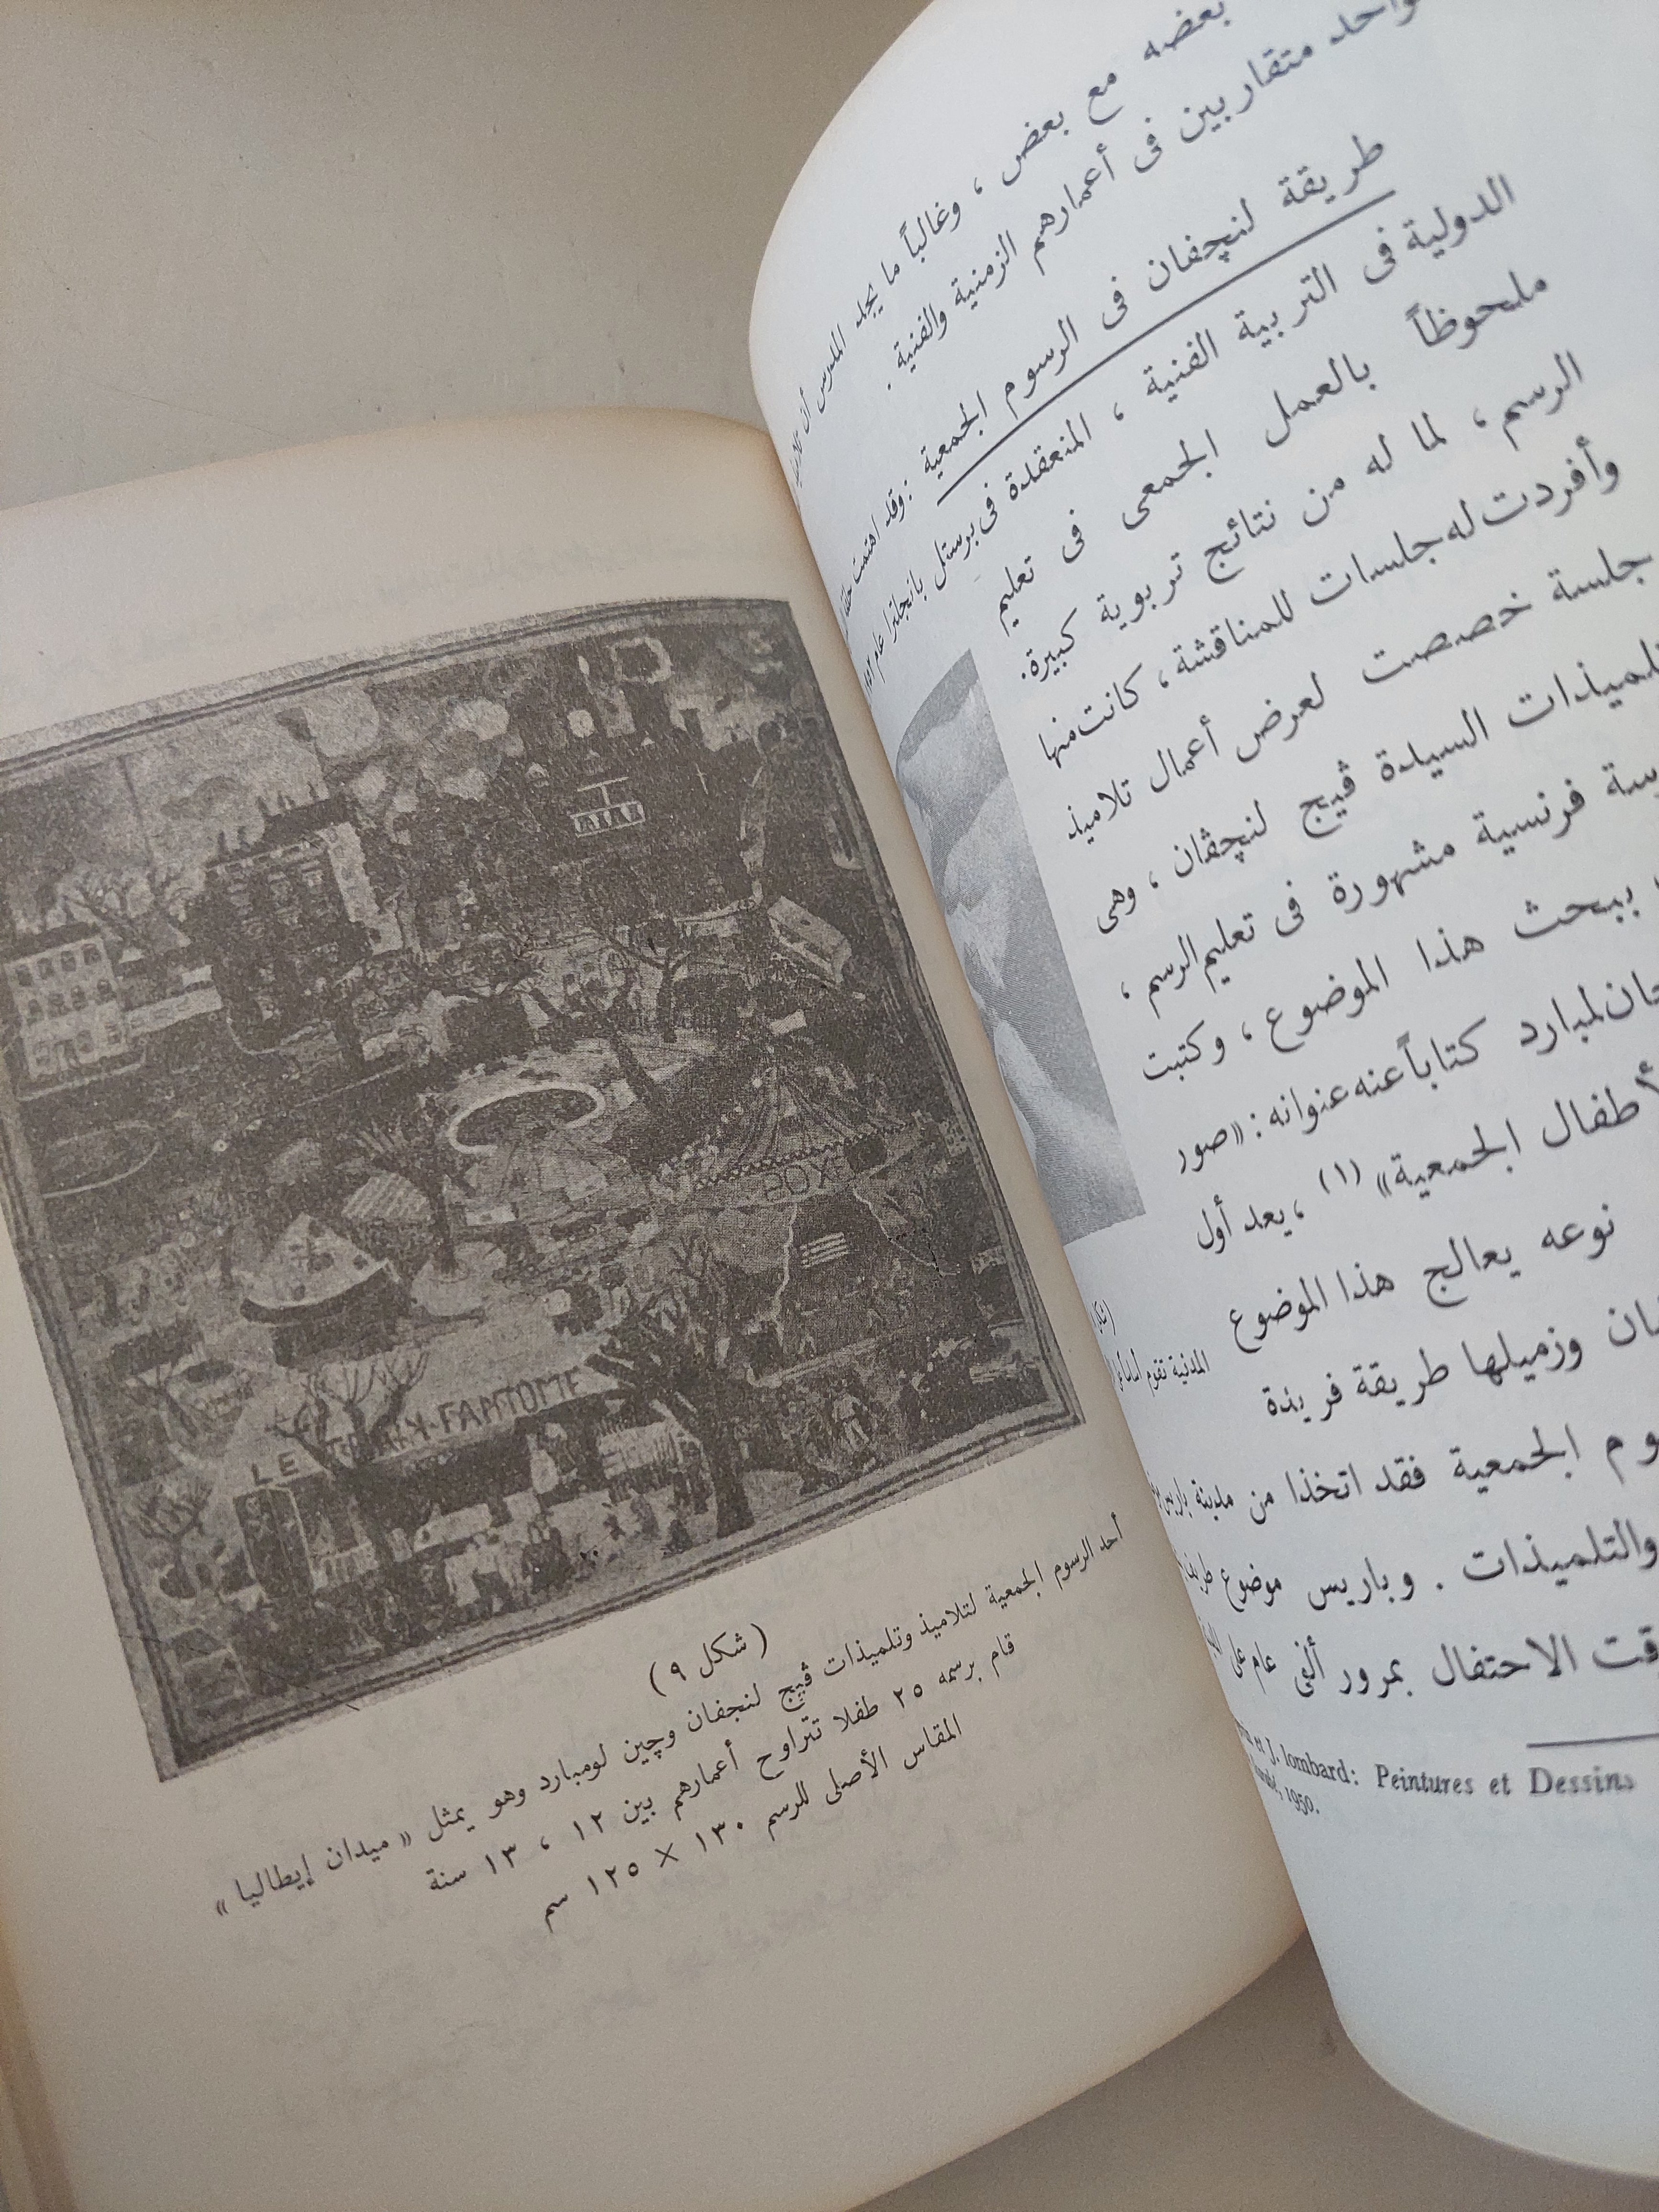 بعضه مع بعض ، وغالباً ما يجد المدرس أن
متقاربين فى أعمارهم الزمنية والفنية .
طريقة لنچفان فى الرسوم الجمعية : وقد اهتمت
الدولية فى التربية الفنية ، المنعقدة فى برستل بانجلترا عام
ملحوظاً بالعمل الجمعى فى تعليم
الرسم ، لما له من نتائج تربوية كبيرة .
وأفردت له جلسات للمناقشة ، كانت منها
جلسة خصصت لعرض أعمال تلاميذ
السيدة ڤيج لنچڤان ، وهى
فرنسية مشهورة فى تعليم الرسم ،
ببحث هذا الموضوع ، وكتبت
لمبارد كتاباً عنه عنوانه : « صور
الجمعية » (١) ، يعد أول
نوعه يعالج هذا الموضوع
وزميلها طريقة فريدة
الجمعية فقد اتخذا من مدينة باريس
والتلميذات . وباريس موضوع
الاحتفال بمرور ألفى عام على
et J. lombard: Peintures et Dessins
1950.
المدنية تقوم
BOXE
LE TRAIN FANTOME
( شكل ٩ )
أحد الرسوم الجمعية لتلاميذ وتلميذات ڤيج لنجفان وچين لومبارد وهو يمثل « ميدان إيطاليا »
قام برسمه ٢٥ طفلا تتراوح أعمارهم بين ١٢ ، ١٣ سنة
المقاس الأصلى للرسم ١٣٠ × ١٢٥ سم